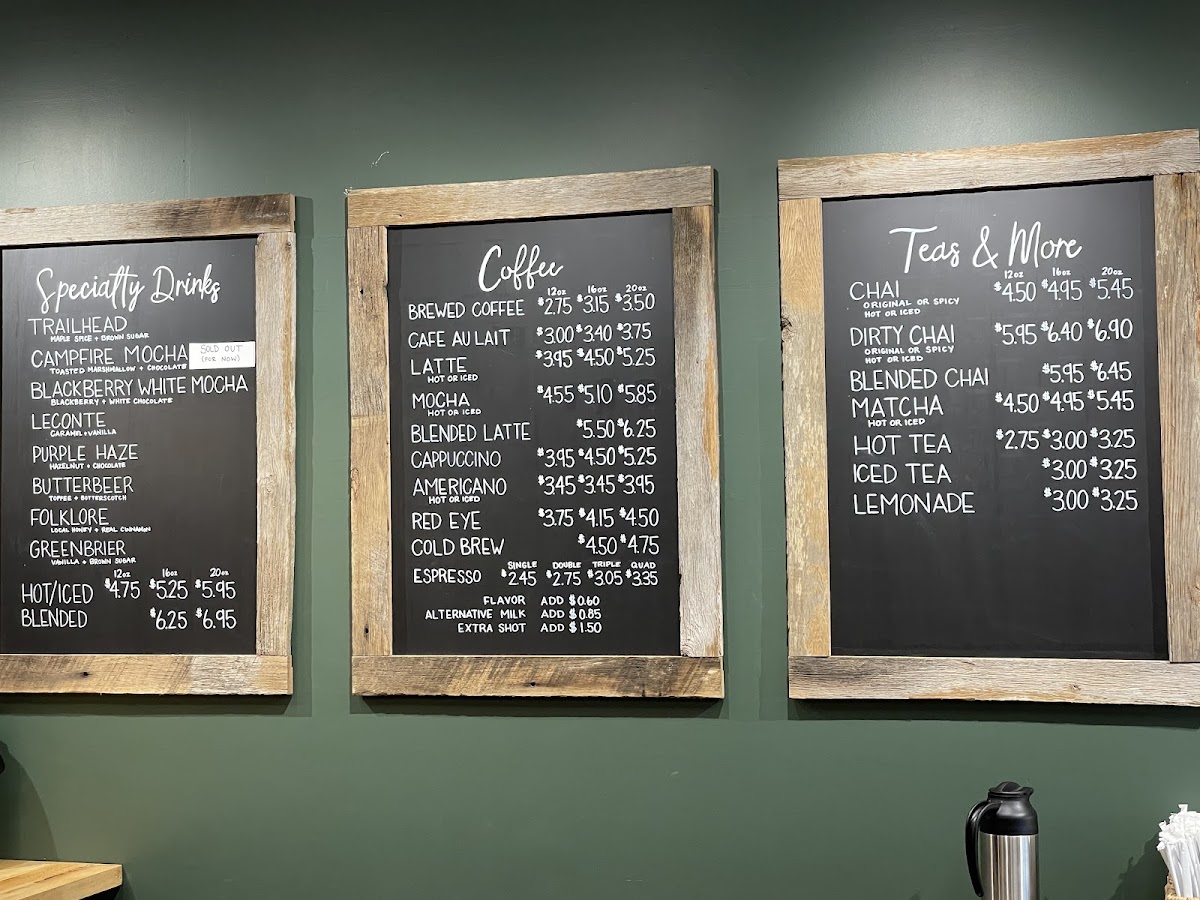 Specialty Drinks
TRAILHEAD
MAPLE SPICE + BROWN SUGAR
CAMPFIRE MOCHA
SOLD OUT
(FOR NOW)
TOASTED MARSHMALLOW + CHOCOLATE
BLACKBERRY WHITE MOCHA
BLACKBERRY + WHITE CHOCOLATE
LECONTE
CARAMEL + VANILLA
PURPLE HAZE
HAZELNUT + CHOCOLATE
BUTTERBEER
TOFFEE + BUTTERSCOTCH
FOLKLORE
LOCAL HONEY + REAL CINNAMON
GREENBRIER
VANILLA + BROWN SUGAR
12oz 16oz 20oz
HOT/ICED $4.75 $5.25 $5.95
BLENDED $6.25 $6.95
Coffee
12oz 16oz 20oz
BREWED COFFEE $2.75 $3.15 $3.50
CAFE AU LAIT $3.00 $3.40 $3.75
LATTE $3.95 $4.50 $5.25
HOT OR ICED
MOCHA $4.55 $5.10 $5.85
HOT OR ICED
BLENDED LATTE $5.50 $6.25
CAPPUCCINO $3.95 $4.50 $5.25
AMERICANO $3.45 $3.45 $3.95
HOT OR ICED
RED EYE $3.75 $4.15 $4.50
COLD BREW $4.50 $4.75
SINGLE DOUBLE TRIPLE QUAD
ESPRESSO $2.45 $2.75 $3.05 $3.35
FLAVOR ADD $0.60
ALTERNATIVE MILK ADD $0.85
EXTRA SHOT ADD $1.50
Teas & More
12oz 16oz 20oz
CHAI $4.50 $4.95 $5.45
ORIGINAL OR SPICY
HOT OR ICED
DIRTY CHAI $5.95 $6.40 $6.90
ORIGINAL OR SPICY
HOT OR ICED
BLENDED CHAI $5.95 $6.45
MATCHA $4.50 $4.95 $5.45
HOT OR ICED
HOT TEA $2.75 $3.00 $3.25
ICED TEA $3.00 $3.25
LEMONADE $3.00 $3.25